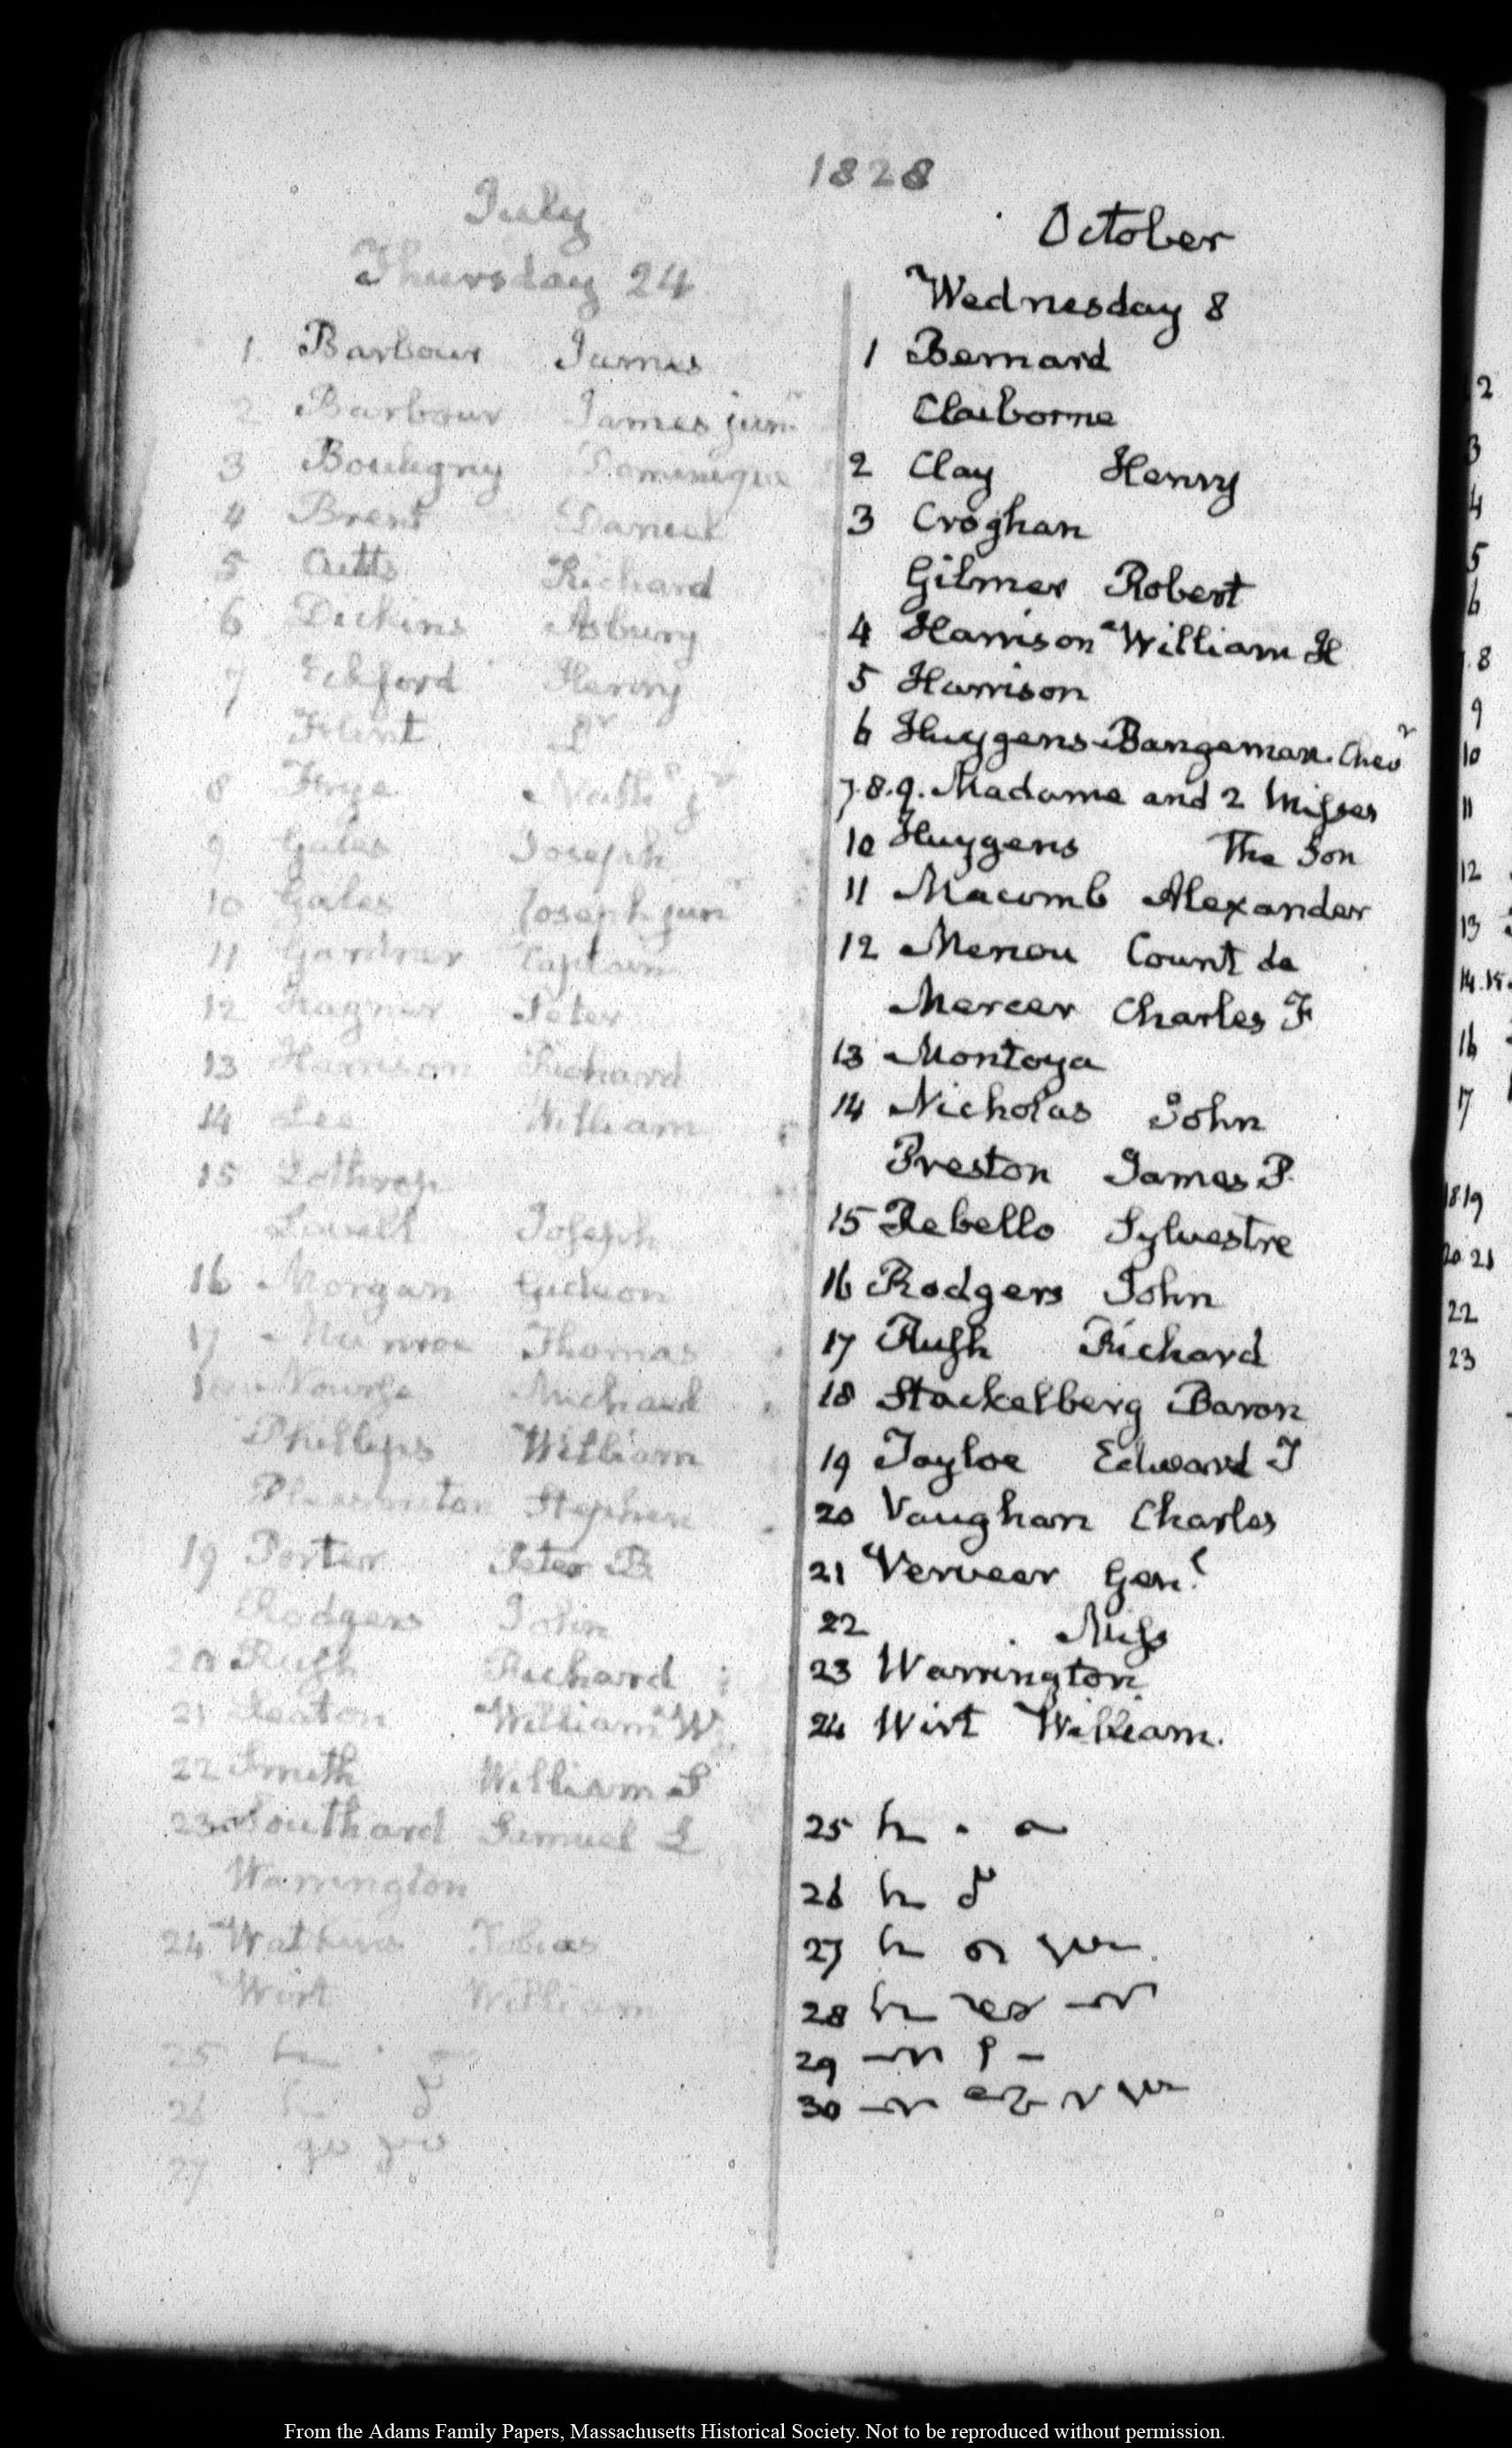 1828
July
Thursday 24
1 Barbour James
2 Barbour James junr
3 Bouligny Dominique
4 Brent Daniel
5 Cutts Richard
6 Dickins Asbury
7 Eckford Henry
Flint Dr
8 Frye Nathl jr
9 Gales Joseph
10 Gales Joseph junr
11 Gardner Captain
12 Hagner Peter
13 Harrison Richard
14 Lee William
15 Lothrop
Lovell Joseph
16 Morgan Gideon
17 Munroe Thomas
18 Nourse Michael
Phillips William
Pleasonton Stephen
19 Porter Peter B
Rodgers John
20 Rush Richard
21 Seaton William W.
22 Smith William S
23 Southard Samuel L
Warrington
24 Watkins Tobias
Wirt William
25
26
27
October
Wednesday 8
1 Bernard
Claiborne
2 Clay Henry
3 Croghan
Gilmer Robert
4 Harrison William H
5 Harrison
6 Huygens Bangeman Chevr
7.8.9. Madame and 2 Misses
10 Huygens The Son
11 Macomb Alexander
12 Menou Count de
Mercer Charles F
13 Montoya
14 Nicholas John
Preston James P.
15 Rebello Sylvestre
16 Rodgers John
17 Rush Richard
18 Stackelberg Baron
19 Tayloe Edward T
20 Vaughan Charles
21 Verveer Genl
22 Miss
23 Warrington
24 Wirt William.
25
26
27
28
29
30
2
3
4
5
6
8
9
10
11
12
13
14.15
16
17
18 19
20 21
22
23
From the Adams Family Papers, Massachusetts Historical Society. Not to be reproduced without permission.